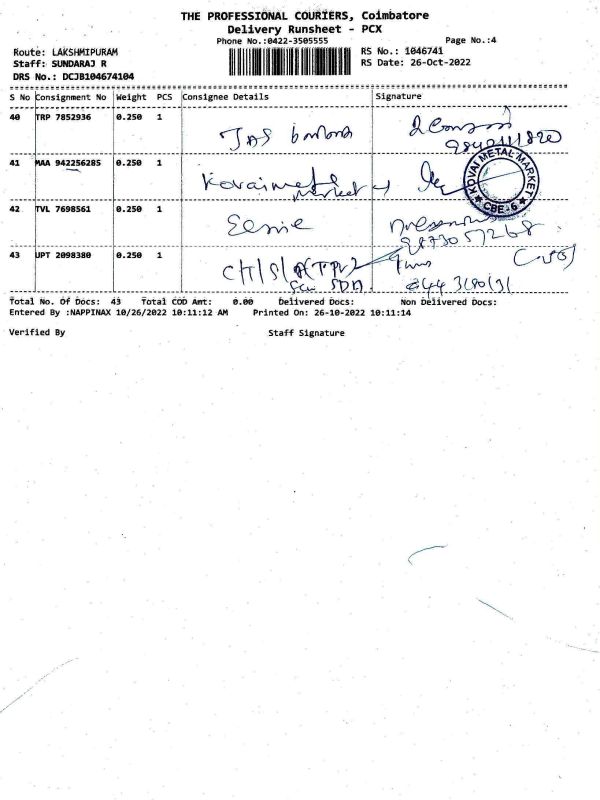 THE PROFESSIONAL COURIERS, Coimbatore
Delivery Runsheet - PCX
Phone No.:0422-3505555 Page No.:4
Route: LAKSHMIPURAM RS No.: 1046741
Staff: SUNDARAJ R RS Date: 26-Oct-2022
DRS No.: DCJB104674104
S No Consignment No Weight PCS Consignee Details Signature
40 TRP 7852936 0.250 1
41 MAA 942256285 0.250 1 Kovai Market
KOVAI METAL MARKET
CBE-6
42 TVL 7698561 0.250 1
43 UPT 2098380 0.250 1
Total No. Of Docs: 43 Total COD Amt: 0.00 Delivered Docs: Non Delivered Docs:
Entered By :NAPPINAX 10/26/2022 10:11:12 AM Printed On: 26-10-2022 10:11:14
Verified By Staff Signature